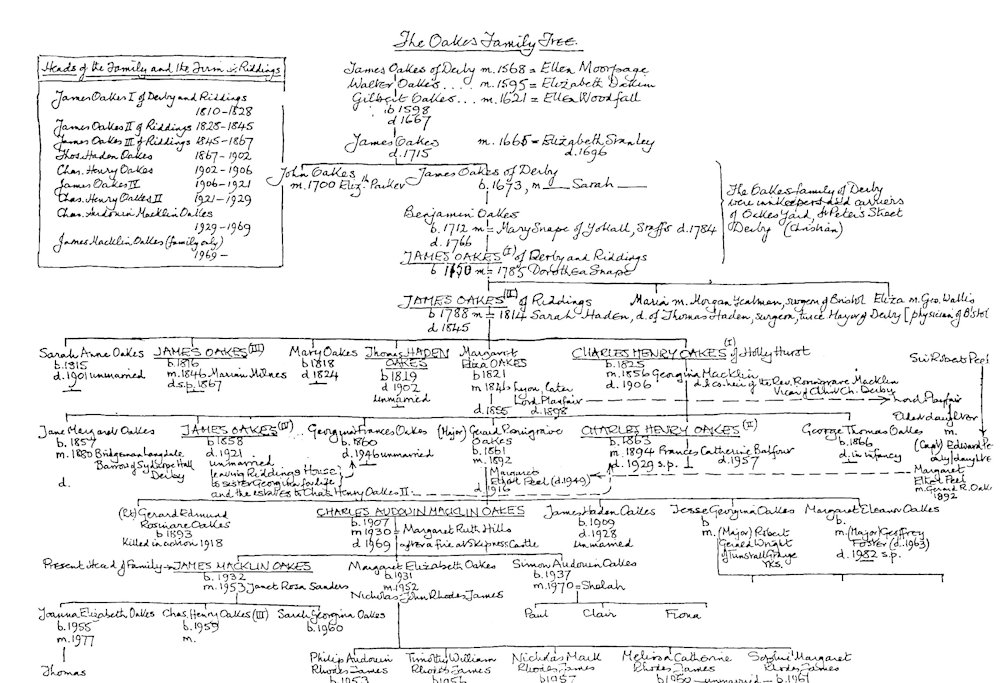 The Oakes Family Tree.
Heads of the Family and the Firm in Riddings
James Oakes I of Derby and Riddings
1810-1828
James Oakes II of Riddings 1828-1845
James Oakes III of Riddings 1845-1867
Thos. Haden Oakes 1867-1902
Chas. Henry Oakes 1902-1906
James Oakes IV 1906-1921
Chas. Henry Oakes II 1921-1929
Chas. Audouin Macklin Oakes
1929-1969
James Macklin Oakes (family only)
1969-
James Oakes of Derby m. 1568 = Ellen Moorpage
Walter Oakes.... m. 1595 = Elizabeth
Gilbert Oakes... m. 1621 = Ellen Woodfall
b 1598
d 1667
James Oakes m. 1665 = Elizabeth Stanley
d. 1715 d. 1696
John Oakes James Oakes of Derby
m. 1700 Elizth Parker b. 1673, m __ Sarah __
The Oakes family of Derby
were innkeepers and carriers
of Ockes Yard, St Peter's Street
Derby
Benjamin Oakes
b. 1712 m = Mary Snape of Yoxall, Staffs d. 1784
d. 1766
JAMES OAKES (I) of Derby and Riddings
b 1750 m = 1785 Dorothea Snape
JAMES OAKES (II) of Riddings Maria m. Morgan Yeatman, surgeon of Bristol Eliza m. Geo. Wallis
b 1788 m = 1814 Sarah Haden, d. of Thomas Haden, surgeon, twice Mayor of Derby [physician of B'stol
d 1845
Sarah Anne Oakes JAMES OAKES (III) Mary Oakes Thomas HADEN OAKES Margaret Eliza OAKES CHARLES HENRY OAKES (I) of Holly Hurst Sir Robert Peel
b. 1815 b. 1816 b 1818 b 1819 b 1821 b. 1825
d. 1901 unmarried m. 1846 Marian Milnes d 1824 d 1902 m. 1846 Lyon, later m. 1856 Georgina Macklin
d.s.p. 1867 unmarried Lord Playfair d. 1906 d & co-heir of the Rev. Roseingrave Macklin
d. 1855 d. 1898 Vicar of Christ Ch. Derby
Lord Playfair
Jane Margaret Oakes JAMES OAKES (IV) Georgina Frances Oakes (Major) Gerard Roseingrave Oakes CHARLES HENRY OAKES (II) George Thomas Oakes Elder daughter
b. 1857 b 1858 b. 1860 b 1861 b. 1863 b. 1866 m.
m. 1880 Bridgeman Langdale d. 1921 d. 1946 unmarried m. 1892 m. 1894 Frances Catherine Balfour d. in infancy (Capt) Edward Pe
Barrow of Sydnope Hall unmarried Margaret d. 1929 s.p. d. 1957 only) daughter
Derby (leaving Riddings House Ethel Peel (d. 1949) Margaret
d. to sister Georgina for life d 1916 Ethel Peel
and the estates to Chas. Henry Oakes II m. Gerard R. Oak
1892
(Lt) Gerard Edmund CHARLES AUDOUIN MACKLIN OAKES James Haden Oakes Jesse Georgina Oakes Margaret Eleanor Oakes
Oakes b. 1907 b. 1909 b b.
b 1893 m 1930 = Margaret Ruth Hills d. 1928 m. (Major) Robert m. (Major) Geoffrey
Killed in action 1918 d 1969 after a fire at Skipness Castle Unmarried Gerald Wright Foster (d. 1963)
of Tunstall Grange d. 1982 s.p.
Yks.
Present Head of Family - JAMES MACKLIN OAKES Margaret Elizabeth Oakes Simon Audouin Oakes
b. 1932 b. 1931 b. 1937
m. 1953 Janet Rosa Sanders m. 1952 m. 1970 = Shelah
Nicholas John Rhodes James
Joanna Elizabeth Oakes Chas. Henry Oakes (III) Sarah Georgina Oakes Paul Clair Fiona
b. 1955 b. 1959 b. 1960
m. 1977 m.
Thomas
Philip Audouin Timothy William Nicholas Mark Melissa Catherine Sophie Margaret
Rhodes James Rhodes James Rhodes James Rhodes James Rhodes James
b 1953 b 1956 b 1957 b 1950 - unmarried - b. 1961